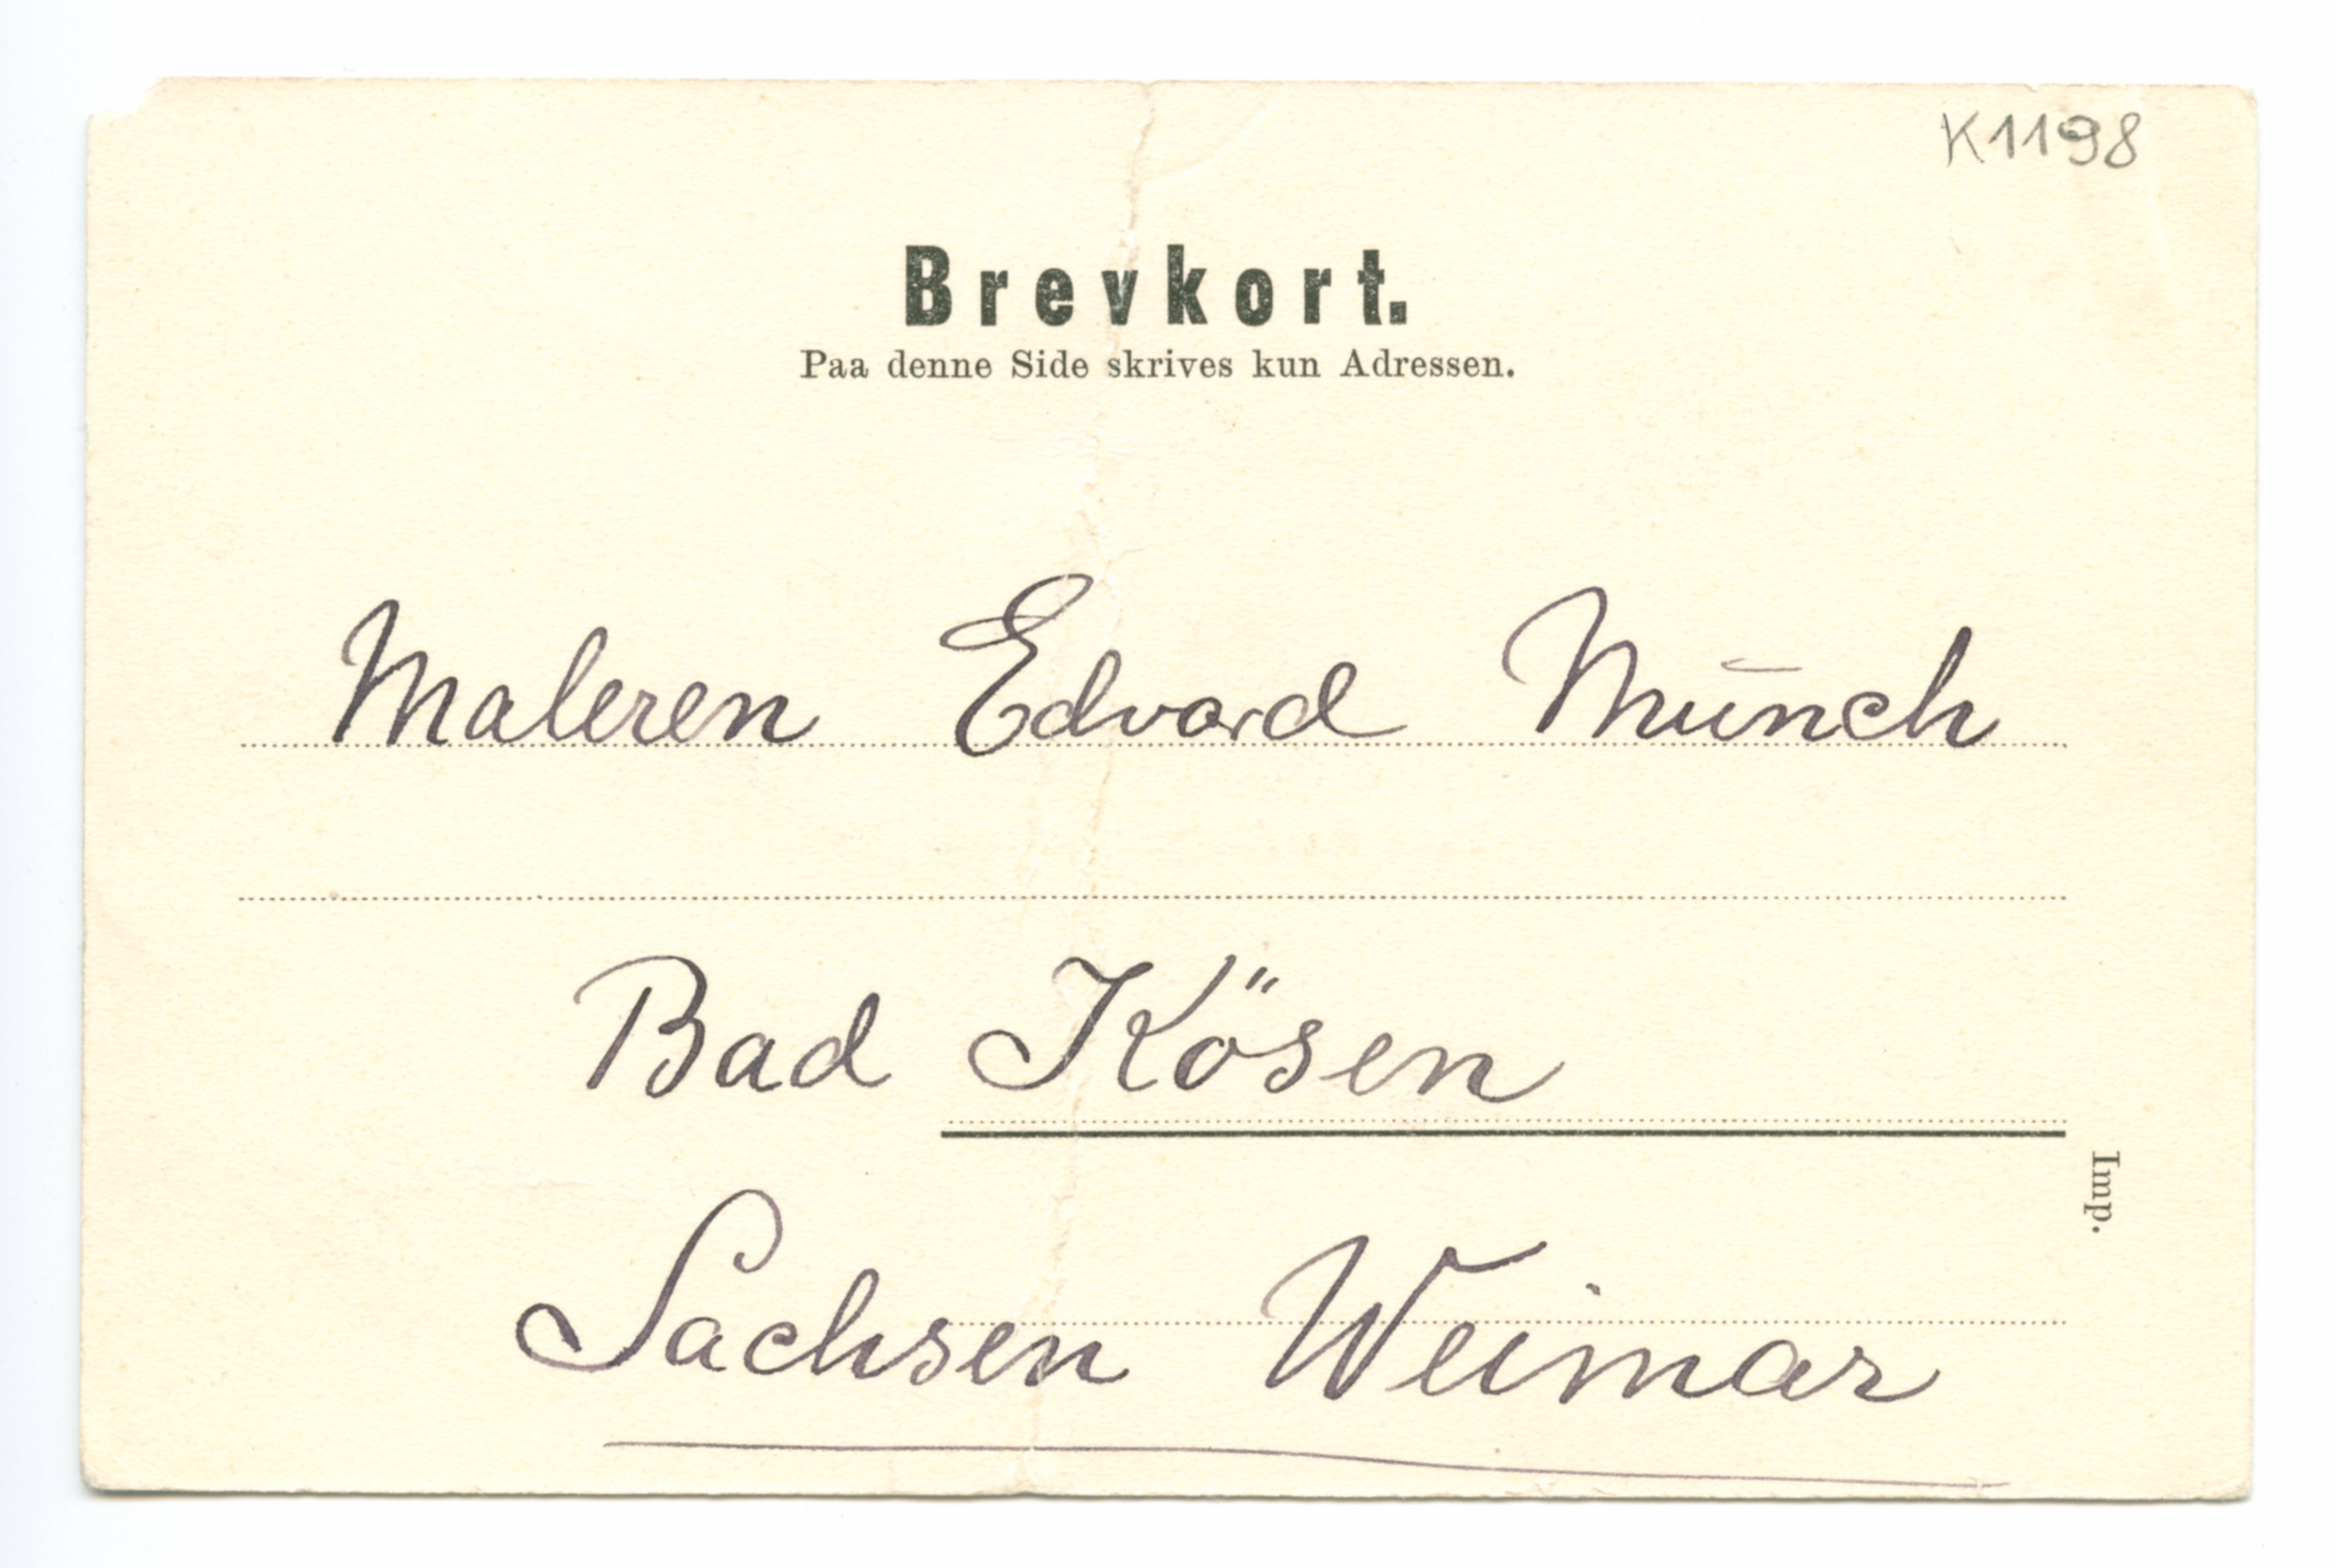 K1198
Brevkort.
Paa denne Side skrives kun Adressen.
Maleren Edvard Munch
Bad Kösen
Imp.
Sachsen Weimar